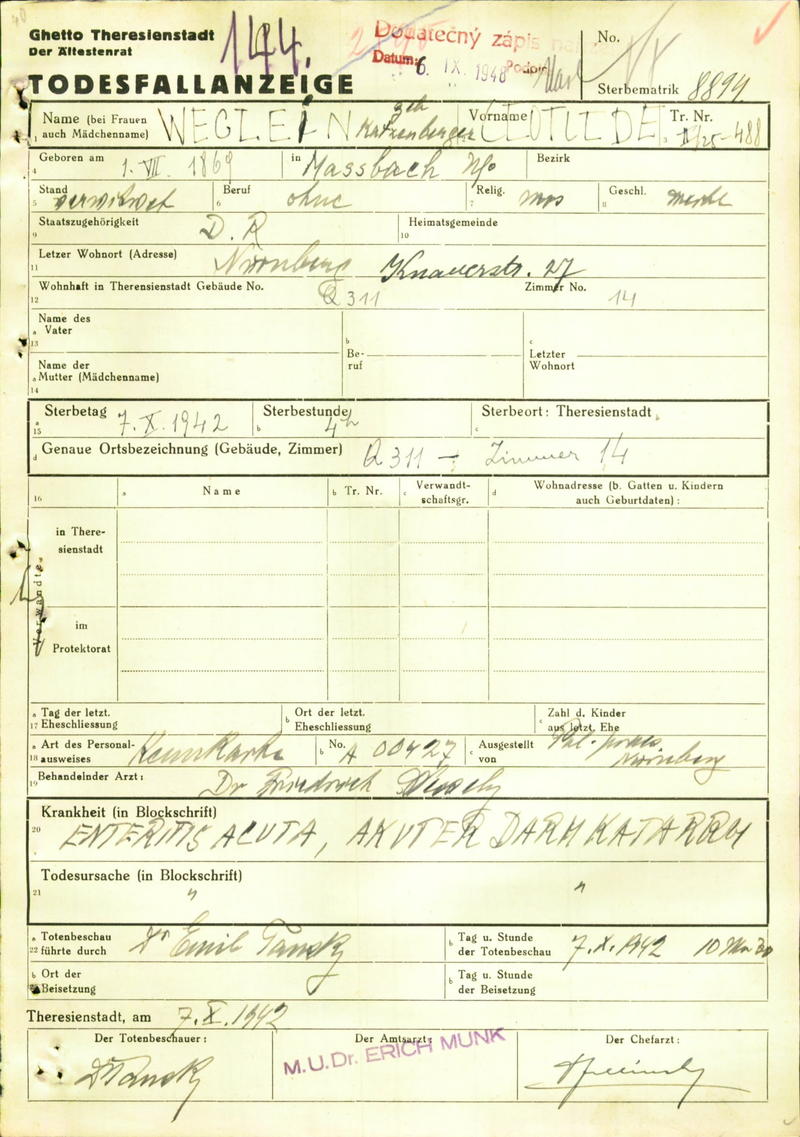 Ghetto Theresienstadt
Der Ältestenrat
144.
Dodatečný zápis
Datum: 6. IX. 1948 Podpis
No.
TODESFALLANZEIGE
Sterbematrik 8894
Name (bei Frauen
1 auch Mädchenname) WEGLEIN geb Katzenberger Vorname CLOTILDE Tr. Nr. II/25-488
Geboren am 1. VII. 1869 in Massbach Bezirk
4
Stand verwitwet Beruf ohne Relig. mos Geschl.
5 6 7 8
Staatszugehörigkeit D. R Heimatsgemeinde
9 10
Letzer Wohnort (Adresse) Nürnberg Knauerstr. 27
11
Wohnhaft in Therensienstadt Gebäude No. Q 311 Zimmer No. 14
12
Name des
a Vater
13
b
Be-
ruf
c
Letzter
Wohnort
Name der
a Mutter (Mädchenname)
14
Sterbetag 7. X. 1942 Sterbestunde 4h Sterbeort: Theresienstadt
a 15 b c
d Genaue Ortsbezeichnung (Gebäude, Zimmer) Q 311 – Zimmer 14
16 a Name b Tr. Nr. c Verwandt-
schaftsgr. d Wohnadresse (b. Gatten u. Kindern
auch Geburtdaten) :
Verwandte
in There-
sienstadt
im
Protektorat
a Tag der letzt.
17 Eheschliessung
b Ort der letzt.
Eheschliessung
c Zahl d. Kinder
aus letzt. Ehe
a Art des Personal-
18 ausweises Kennkarte b No. A 00427 c Ausgestellt
von Nürnberg
19 Behandelnder Arzt: Dr Friedrich
Krankheit (in Blockschrift)
20 ENTERITIS ACUTA, AKUTER DARMKATARRH
Todesursache (in Blockschrift)
21 " "
a Totenbeschau
22 führte durch Dr Emil Tansky b Tag u. Stunde
der Totenbeschau 7. X. 1942 10
b Ort der
Beisetzung
b Tag u. Stunde
der Beisetzung
Theresienstadt, am 7. X. 1942
Der Totenbeschauer: Der Amtsarzt: Der Chefarzt:
DrTansky M.U.Dr. ERICH MUNK